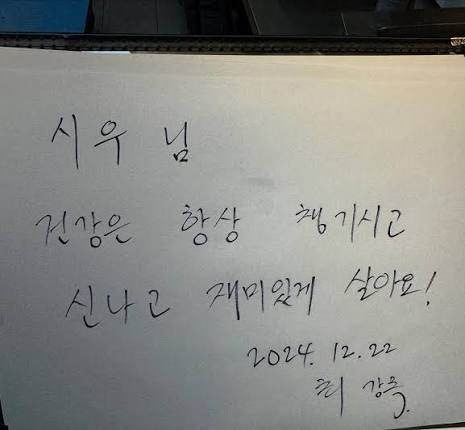 시우 님
건강은 항상 챙기시고
신나고 재미있게 살아요!
2024. 12. 22
최 강록.